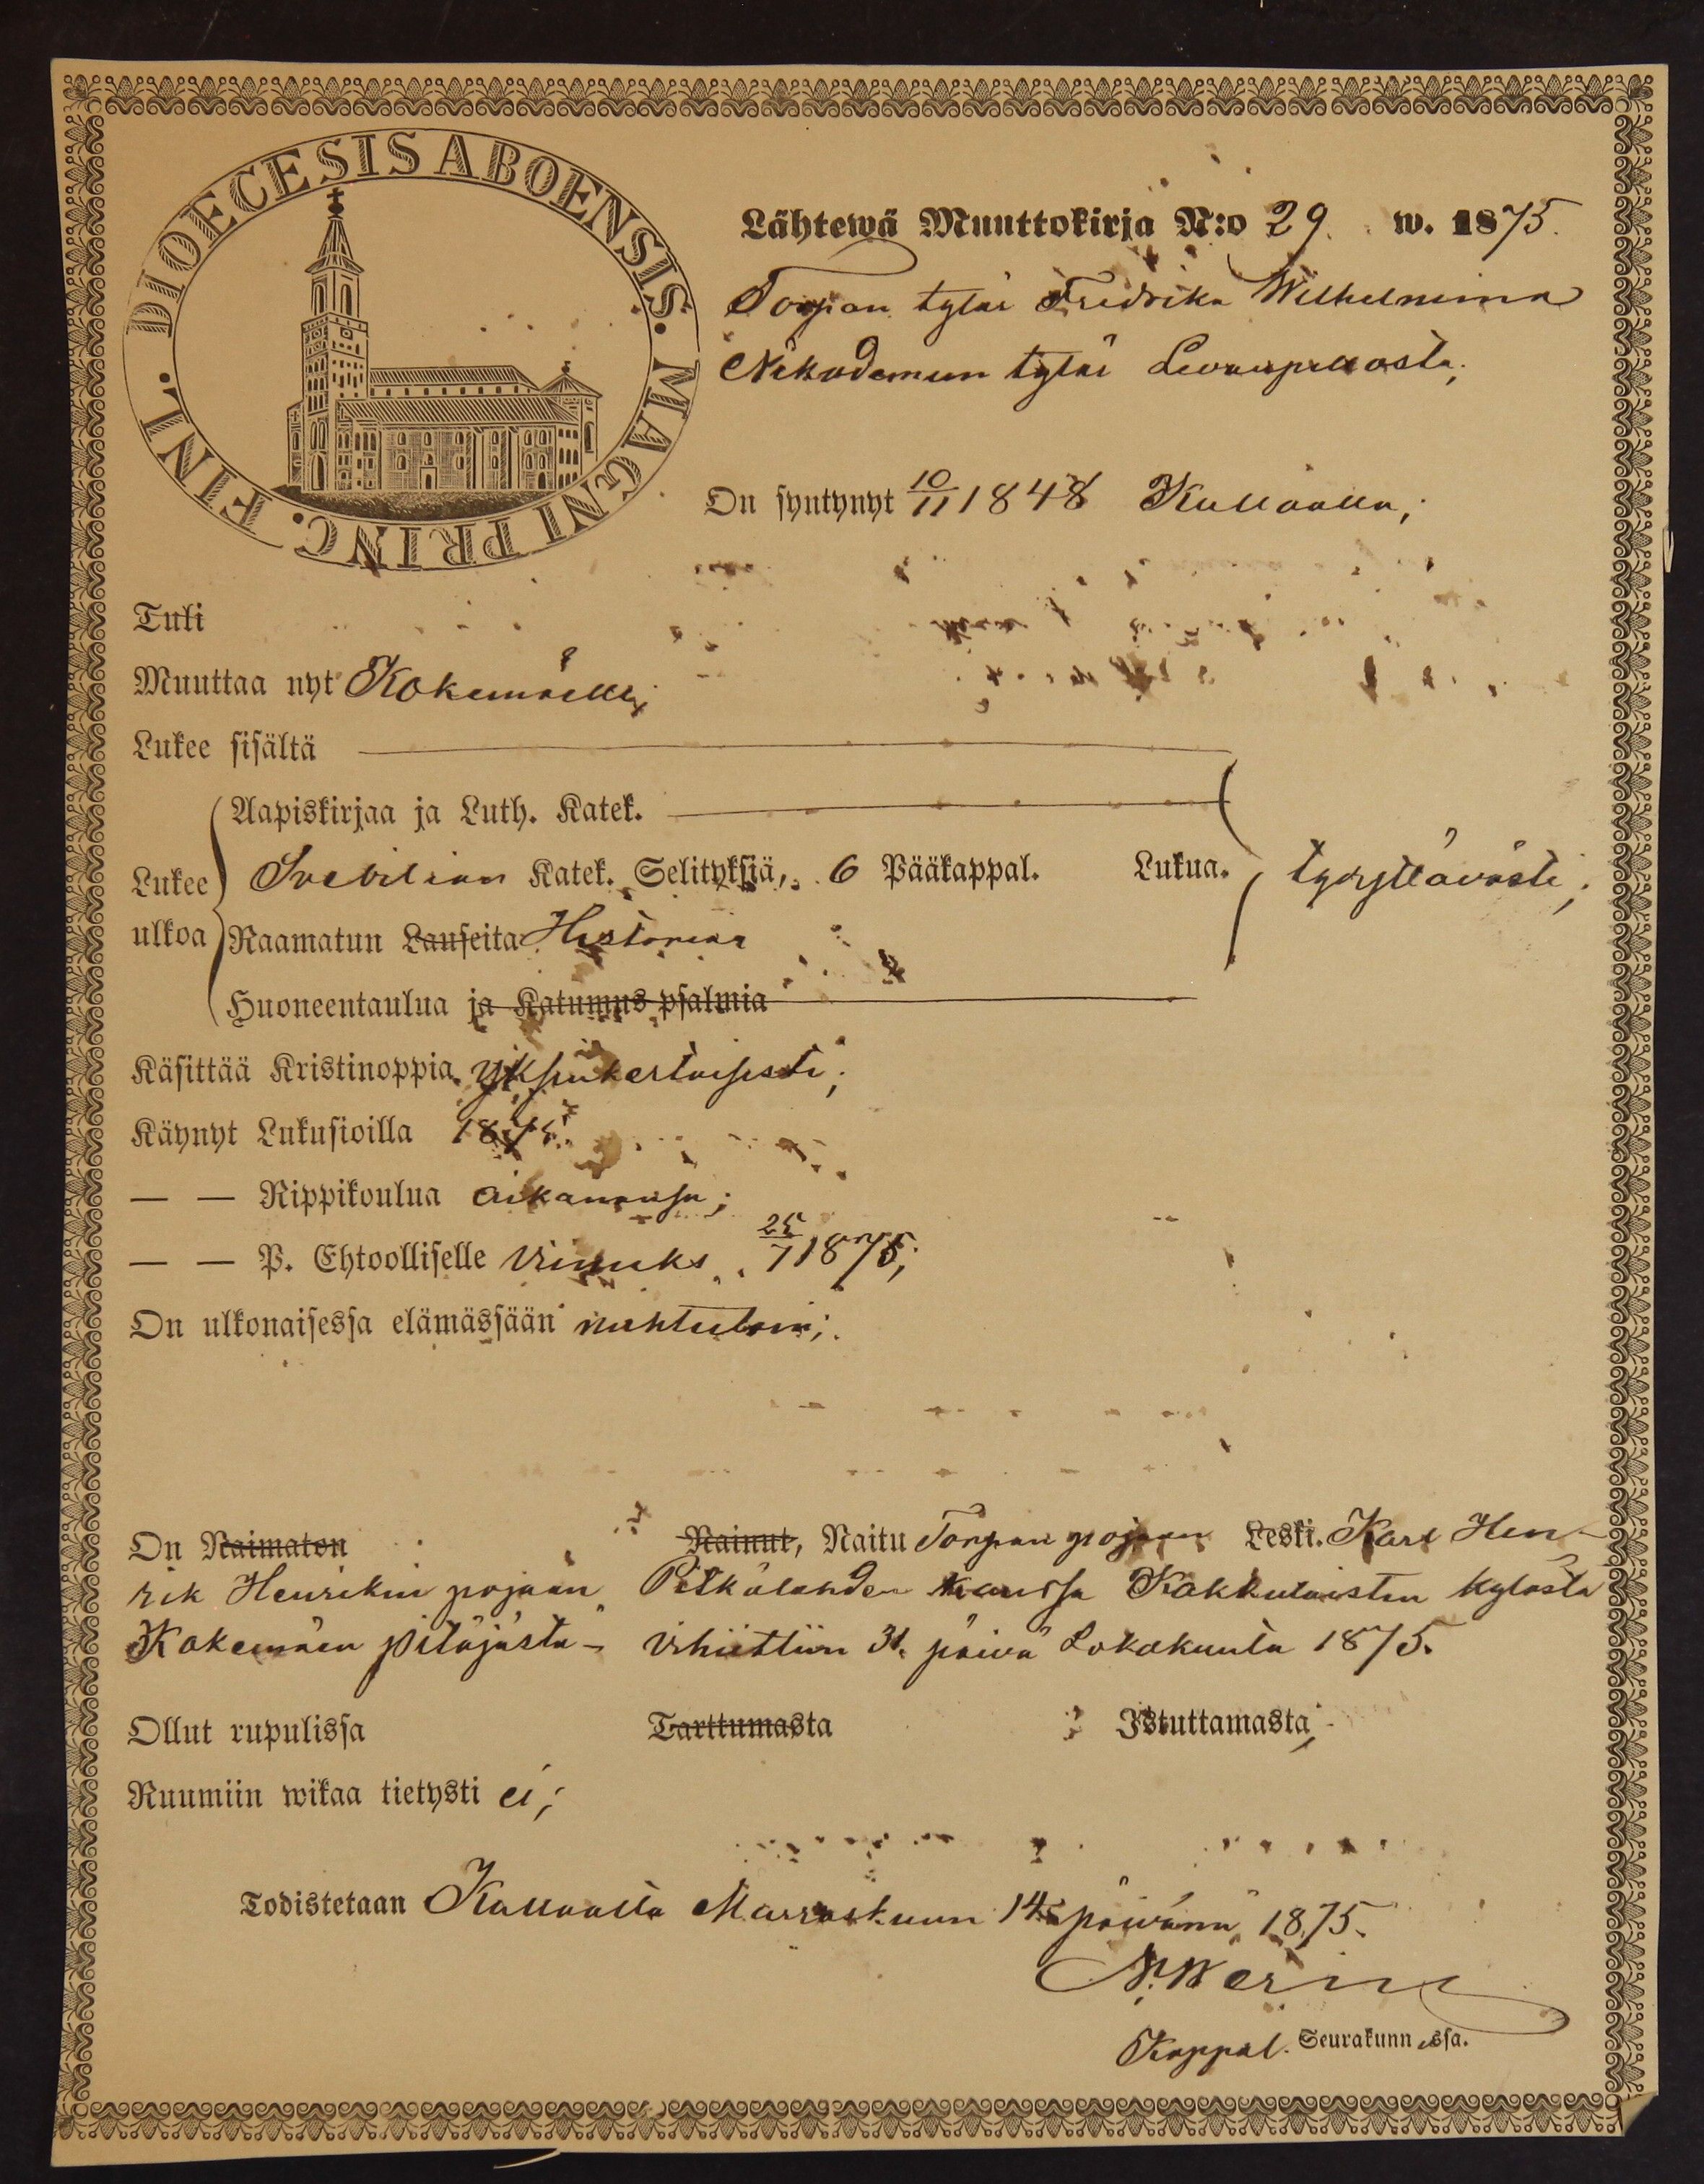 DIOECESIS ABOENSIS. MAGNI PRINC. FINL.
Lähtewä Muuttokirja N:o 29. w. 1875.
Torpan tytär Fredrika Wilhelmina
Nikodemun tytär Levanpellosta;
On syntynyt 10/11 1848 Kullaalla;
Tuli
Muuttaa nyt Kokemäelle;
Lukee sisältä
Aapiskirjaa ja Luth. Katek.
Lukee ulkoa
Svebilian Katek. Selityksiä, 6 Pääkappal. Lukua. tyydyttävästi;
Raamatun Lauseita Historiaa
Huoneentaulua ja Katumus psalmia
Käsittää Kristinoppia yksinkertaisesti;
Käynyt Lukusioilla 1875.
— — Rippikoulua aikanansa;
— — P. Ehtoolliselle viimeks 25/7 1875;
On ulkonaisessa elämässään nuhtetoin;
On Naimaton Nainut, Naitu Torpan pojan Leski. Karl Hen-
rik Henrikin pojaan Pitkälahden kanssa Kakkulaisten kylästä
Kokemäen pitäjästä - vihittiin 31. päivä Lokakuuta 1875.
Ollut rupulissa Tarttumasta Istuttamasta;
Ruumiin wikaa tietysti ei;
Todistetaan Kullaalla Marraskuun 14. päivänä 1875.
Kappal. Seurakunnassa.